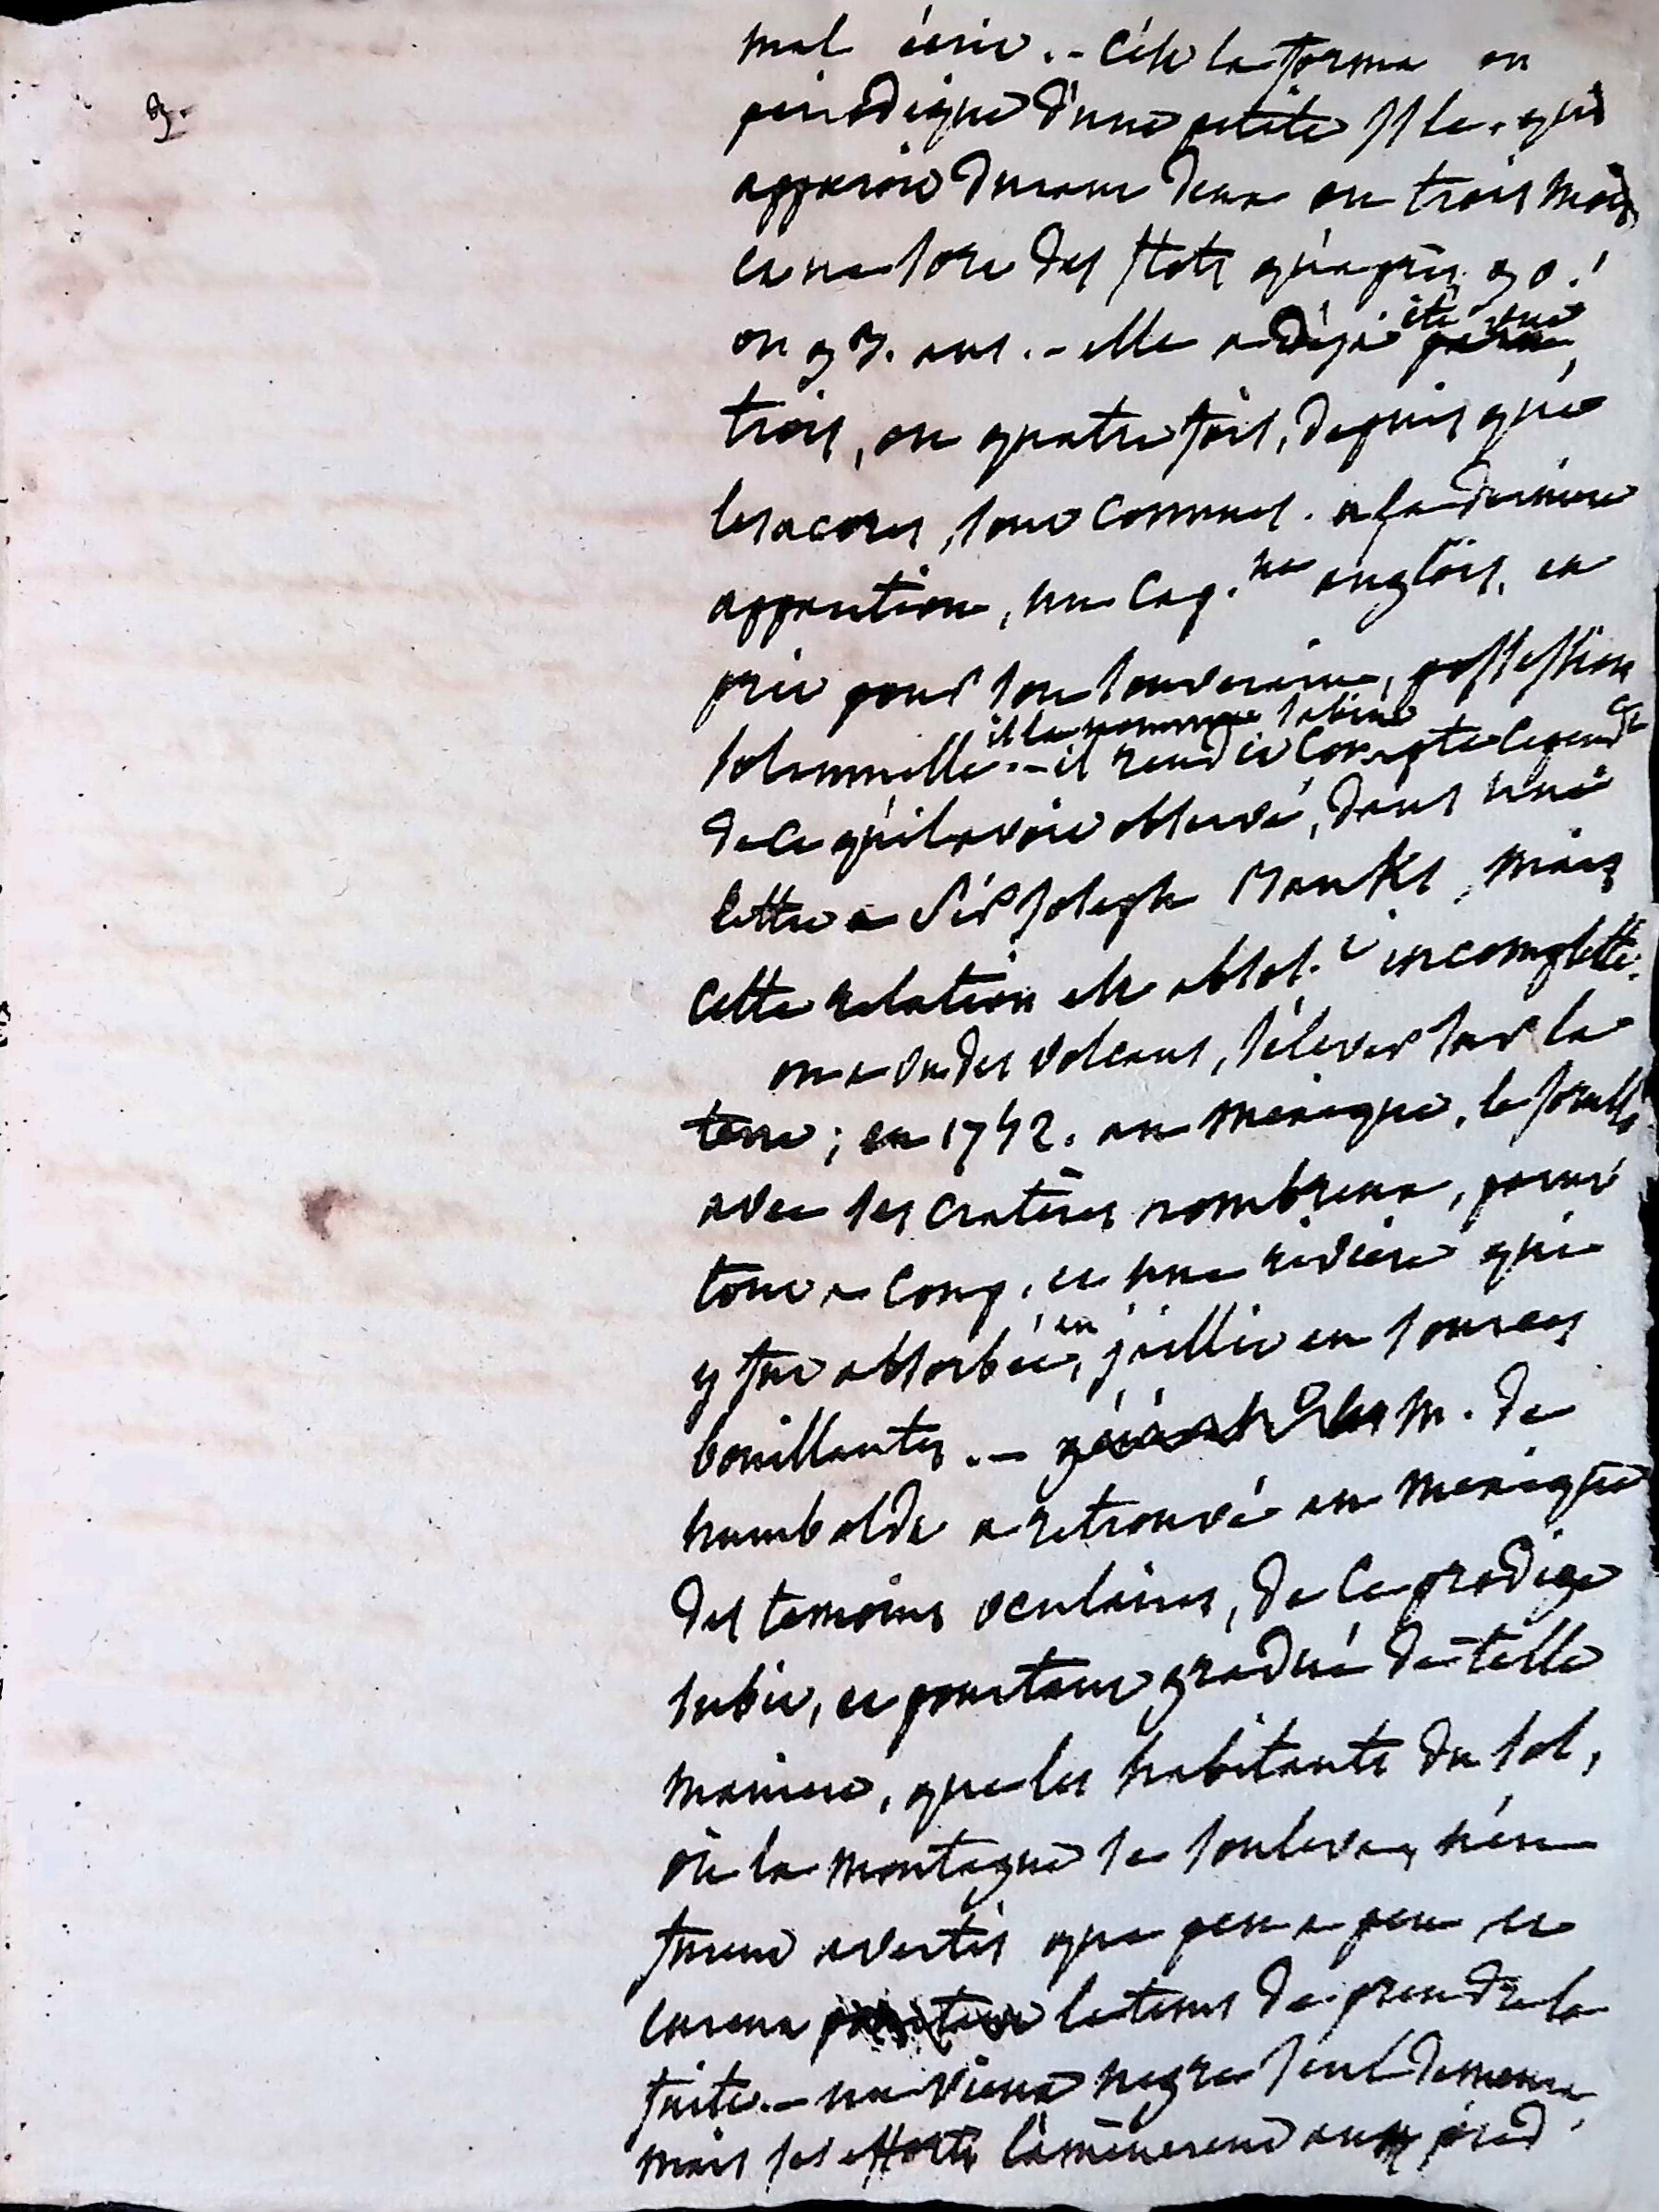 3.
mal écrit. - C'est la forma on
périodique d'une petite Isle, qui
apparoit durant deux ou trois mois
et ne sort des flots qu'après 90.
ou 93. ans. - elle a déjà été vue
trois, ou quatre fois, depuis que
les acores, sont connues. a sa derniere
apparition, un Cap.ne anglois, en
prit pour son souverain, possession
solemnelle. - il la nomma Sabrina il rendit compte cepend.t
de ce qu'il avoit observé, dans une
lettre a Sir Joseph Banks, mais
cette relation est absol.t incomplette.
on a vu des volcans, s'élever sur la
terre; en 1742. au mexique, le Jorullo
avec ses cratères nombreux, parut
tout a coup, et une riviere qui
y fut absorbée, en jaillit en sources
bouillantes. - M. de
humboldt a retrouvé au mexique
des temoins oculaires, de ce prodige
subit, et pourtant gradué de telle
maniere, que les habitants du sol,
où la montagne se souleva, n'en
furent avertis que peu a peu et
eurent le tems de prendre la
fuite. - un vieux negre seul demeura,
mais ses efforts l'amenerent au pied